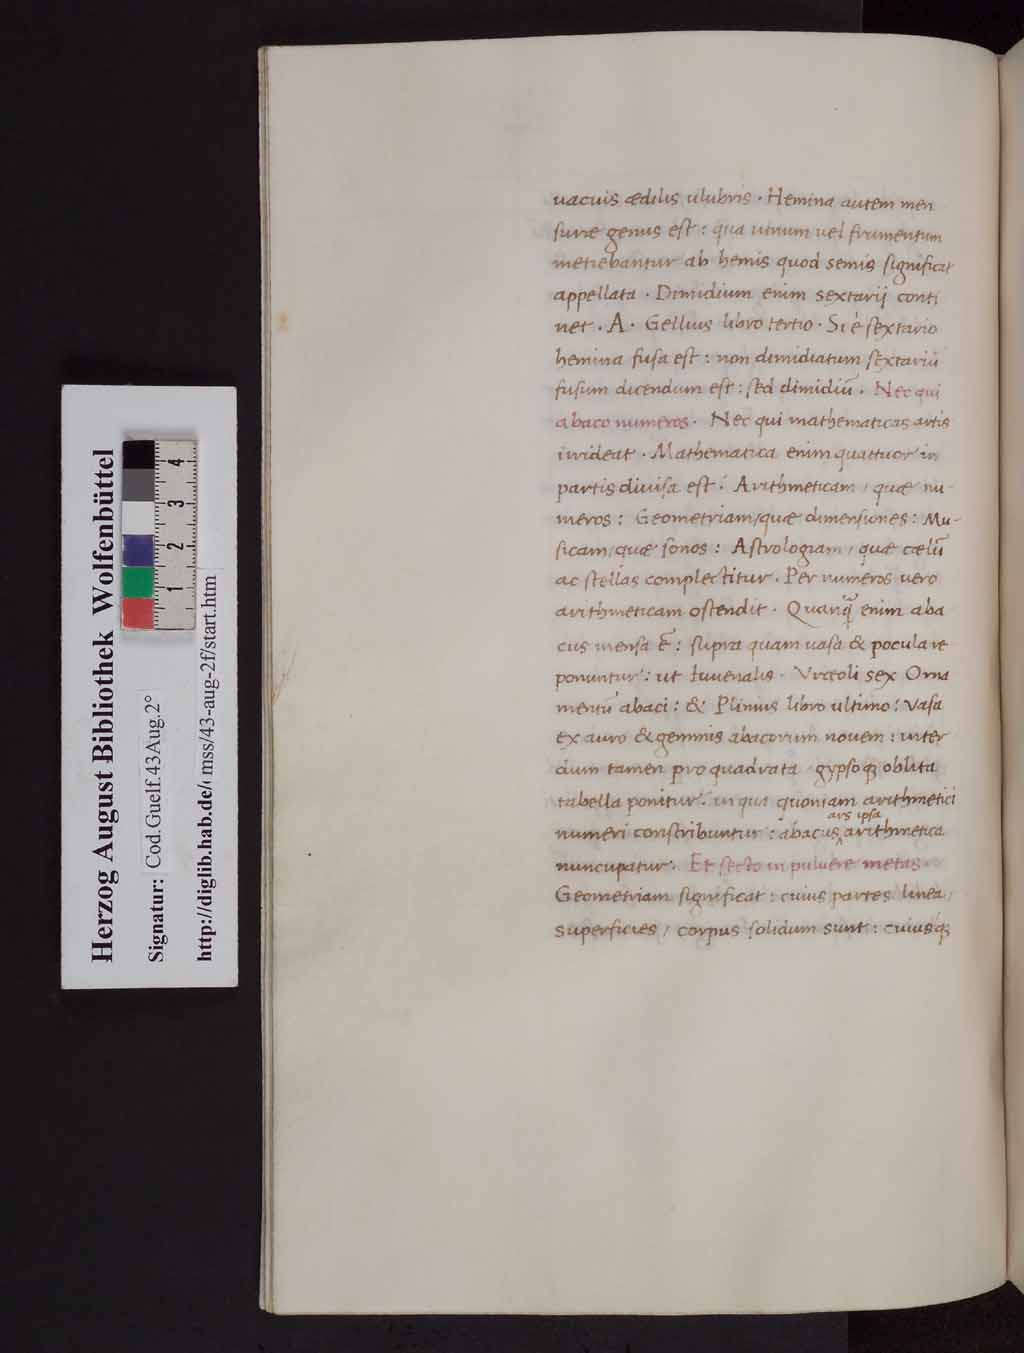 Herzog August Bibliothek Wolfenbüttel
Signatur: Cod.Guelf.43Aug.2°
http://diglib.hab.de/ mss/43-aug-2f/start.htm
1 2 3 4
uacuis ædilis ulubris · Hemina autem men
suræ genus est : qua uinum uel frumentum
metiebantur ab hemis quod semis significat
appellata · Dimidium enim sextarij conti
net · A · Gellius libro tertio · Si è sextario
hemina fusa est : non dimidiatum sextariũ
fusum dicendum est : sed dimidiũ · Nec qui
abaco numeros · Nec qui mathematicas artis
irrideat · Mathematica enim quattuor in
partis diuisa est : Arithmeticam / quæ nu-
meros : Geometriam/quæ dimensiones : Mu-
sicam/quæ sonos : Astrologiam / quæ cælũ
ac stellas complectitur · Per numeros uero
arithmeticam ostendit · Quanq̃ enim aba
cus mensa ẽ : supra quam uasa & pocula re
ponuntur : ut Iuuenalis · Vrceoli sex Orna
mentũ abaci : & Plinius libro ultimo : Vasa
ex auro & gemmis abacorum nouem : inter
dum tamen pro quadrata gypsoq; oblita
tabella ponitur : in qua quoniam arithmetici
ars ipsa
numeri conscribuntur : abacus ‸ arithmetica
nuncupatur · Et secto in puluere metas ·
Geometriam significat : cuius partes linea /
superficies / corpus solidum sunt : cuiusq;